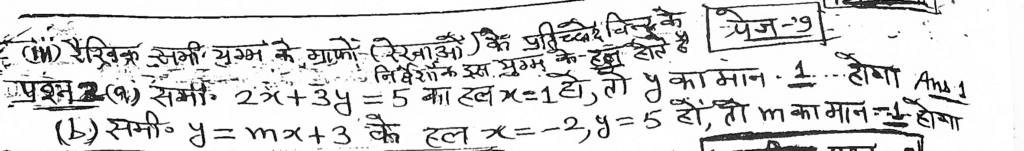 (iii) रैखिक समी. युग्म के ग्राफों (रेखाओं) के प्रतिच्छेद बिन्दु के
निर्देशांक इस युग्म के हल होते है
पेज-9
प्रश्न 2 (a) समी. 2x+3y=5 का हल x=1 हो, तो y का मान . 1 ... होगा Ans 1
(b) समी० y=mx+3 के हल x=-2, y=5 हों, तो m का मान = -1 होगा